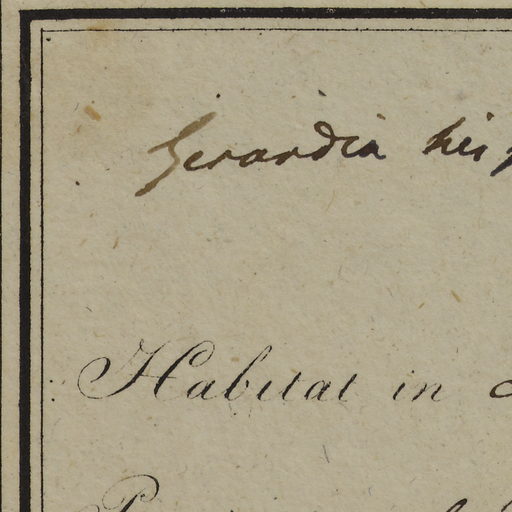 Gerardia his
Habitat in